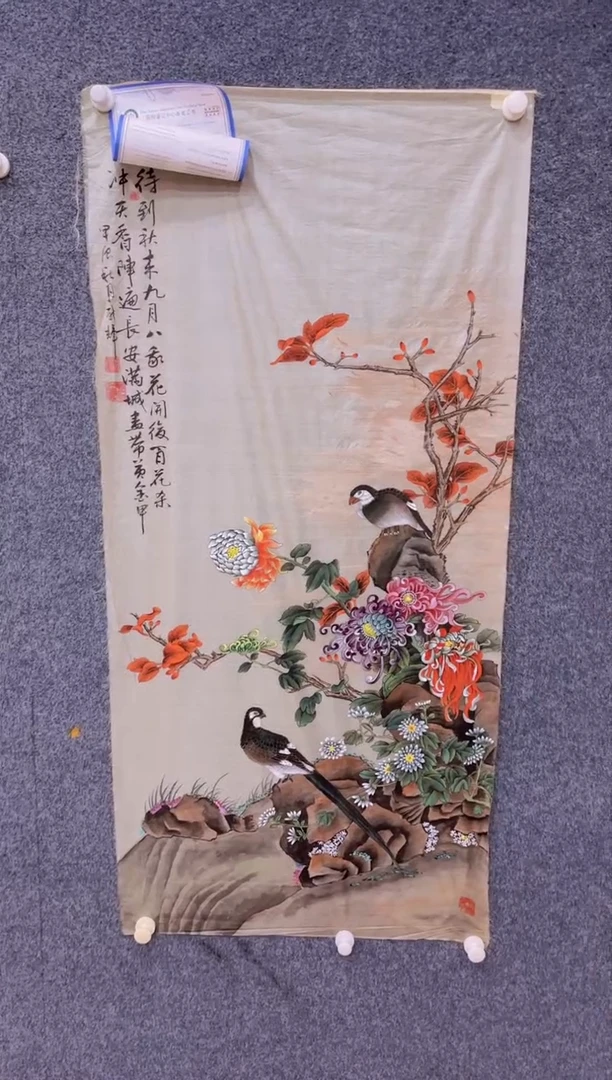 待到秋来九月八我花開後百花杀
冲天香陣遍長安滿城盡带黄金甲
秋月